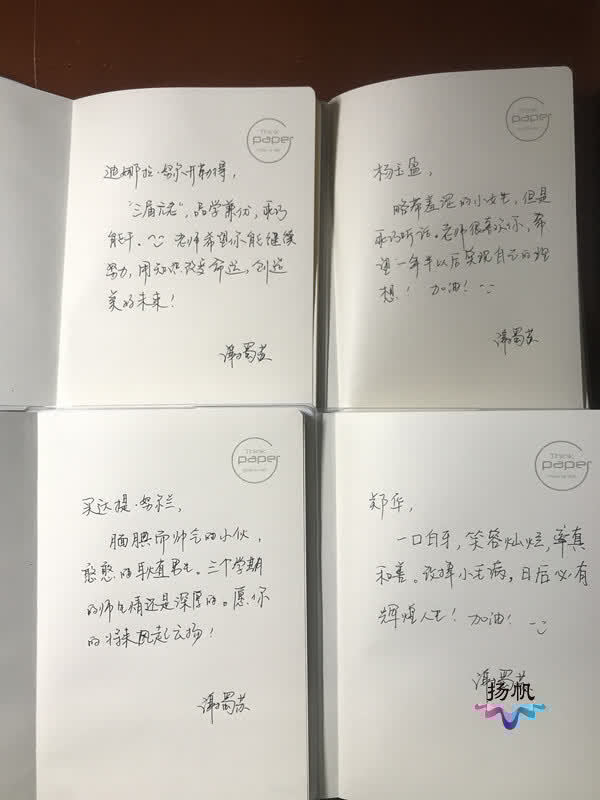 Think
paper
迪娜拉·努尔开勒得，
“三届元老”，品学兼优，乖巧
能干。老师希望你能继续
努力，用知识改变命运，创造
美好未来！
谭蜀苏
Think
paper
杨玉盈，
略带羞涩的小女生，但是
乖巧听话。老师很喜欢你，希
望一年半以后实现自己的理
想！加油！
谭蜀苏
Think
paper
买达提·努尔兰，
腼腆而帅气的小伙，
憨憨的耿直男生。三个学期
的师生情还是深厚的。愿你
的将来风起云扬！
谭蜀苏
Think
paper
郑华，
一口白牙，笑容灿烂，率真
和善。改掉小毛病，日后必有
辉煌人生！加油！
谭蜀苏
扬帆